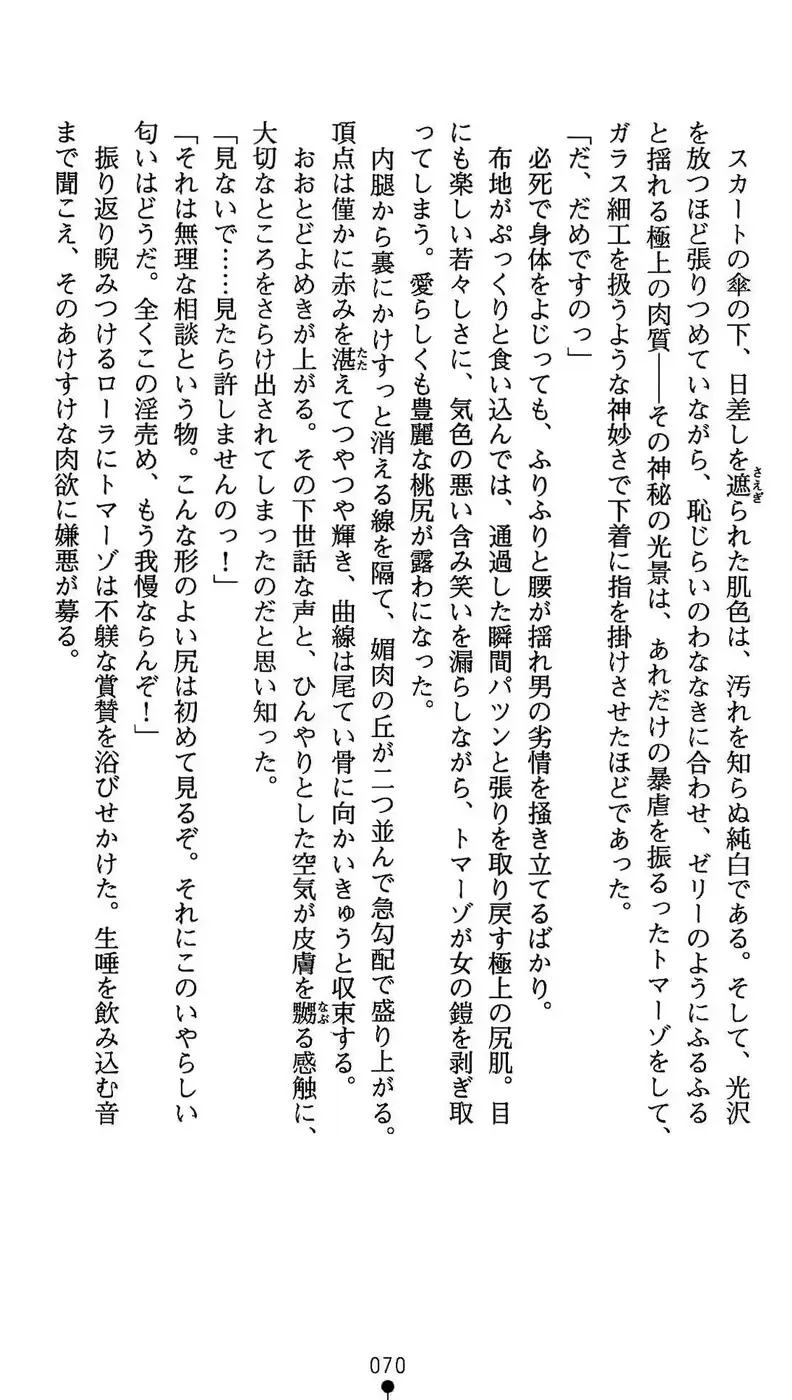 スカートの傘の下、日差しを遮られた肌色は、汚れを知らぬ純白である。そして、光沢
を放つほど張りつめていながら、恥じらいのわななきに合わせ、ゼリーのようにふるふる
と揺れる極上の肉質――その神秘の光景は、あれだけの暴虐を振るったトマーゾをして、
ガラス細工を扱うような神妙さで下着に指を掛けさせたほどであった。
「だ、だめですのっ」
必死で身体をよじっても、ふりふりと腰が揺れ男の劣情を掻き立てるばかり。
布地がぷっくりと食い込んでは、通過した瞬間パツンと張りを取り戻す極上の尻肌。目
にも楽しい若々しさに、気色の悪い含み笑いを漏らしながら、トマーゾが女の鎧を剥ぎ取
ってしまう。愛らしくも豊麗な桃尻が露わになった。
内腿から裏にかけすっと消える線を隔て、媚肉の丘が二つ並んで急勾配で盛り上がる。
頂点は僅かに赤みを湛えてつやつや輝き、曲線は尾てい骨に向かいきゅうと収束する。
おおとどよめきが上がる。その下世話な声と、ひんやりとした空気が皮膚を嬲る感触に、
大切なところをさらけ出されてしまったのだと思い知った。
「見ないで……見たら許しませんのっ！」
「それは無理な相談という物。こんな形のよい尻は初めて見るぞ。それにこのいやらしい
匂いはどうだ。全くこの淫売め、もう我慢ならんぞ！」
振り返り睨みつけるローラにトマーゾは不躾な賞賛を浴びせかけた。生唾を飲み込む音
まで聞こえ、そのあけすけな肉欲に嫌悪が募る。
070